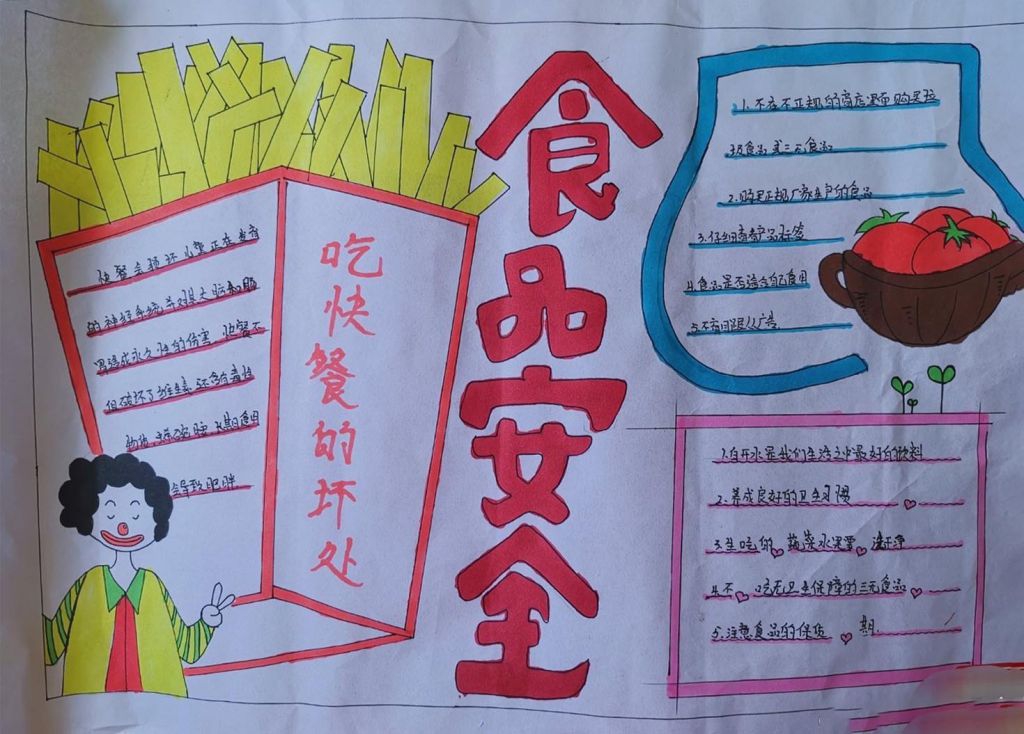 快餐会损坏儿童正在发育
的神经系统,并对其大脑和肠
胃造成永久性的伤害,快餐不
但破坏了维生素,还含有毒性
长期食用
会导致肥胖.
吃快餐的坏处
食品安全
1.不在不正规的商店里面购买垃
圾食品或三无食品
2.购买正规厂家生产的食品
3.仔细查看产品标签
4.食品是否适合自己食用
5.不盲目跟从广告
1.白开水是我们生活之中最好的饮料
2.养成良好的卫生习惯
3.生吃的蔬菜水果要洗干净
4.不吃无卫生保障的三无食品
5.注意食品的保质期.